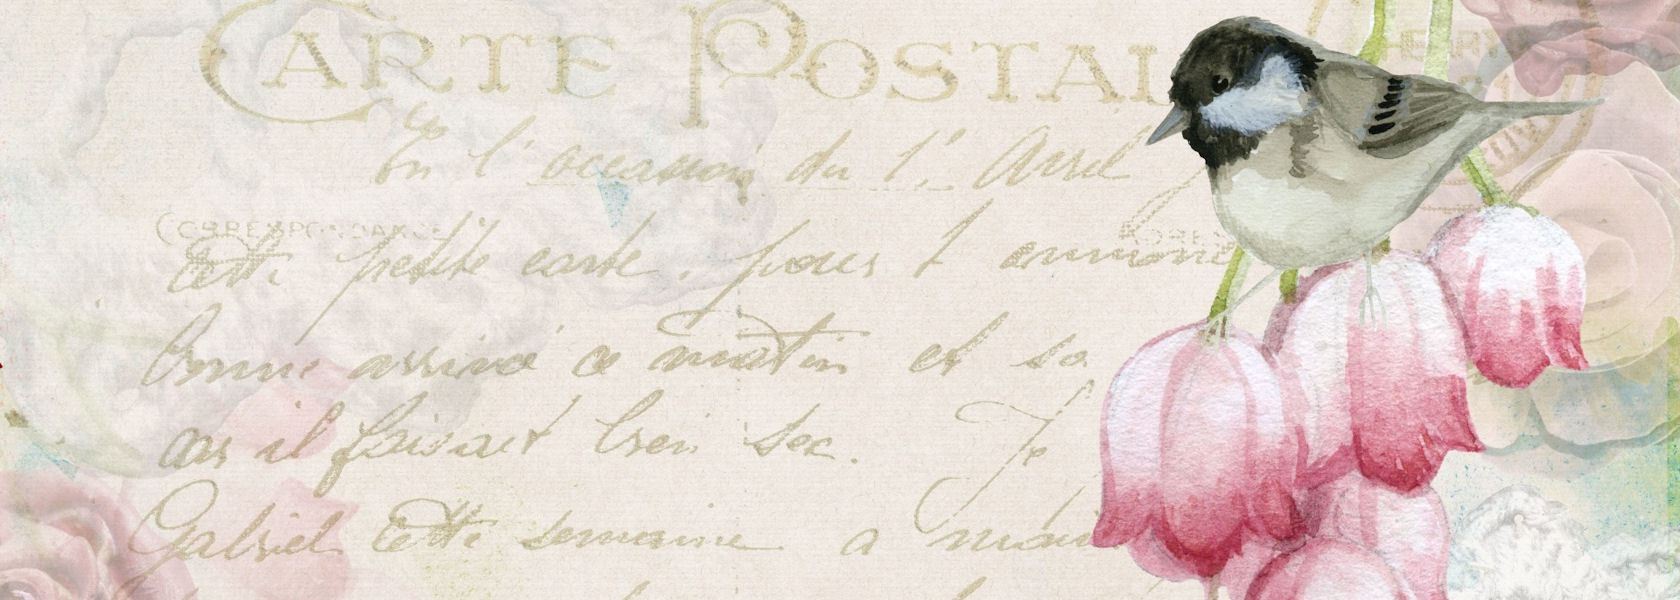 CARTE POSTAL
En l'occasion du 1. Avril
CORRESPONDANCE
Cette petite carte, pour t
bonne arrivé ce matin et sa
car il faisait bien sec. Je
Gabriel cette semaine a